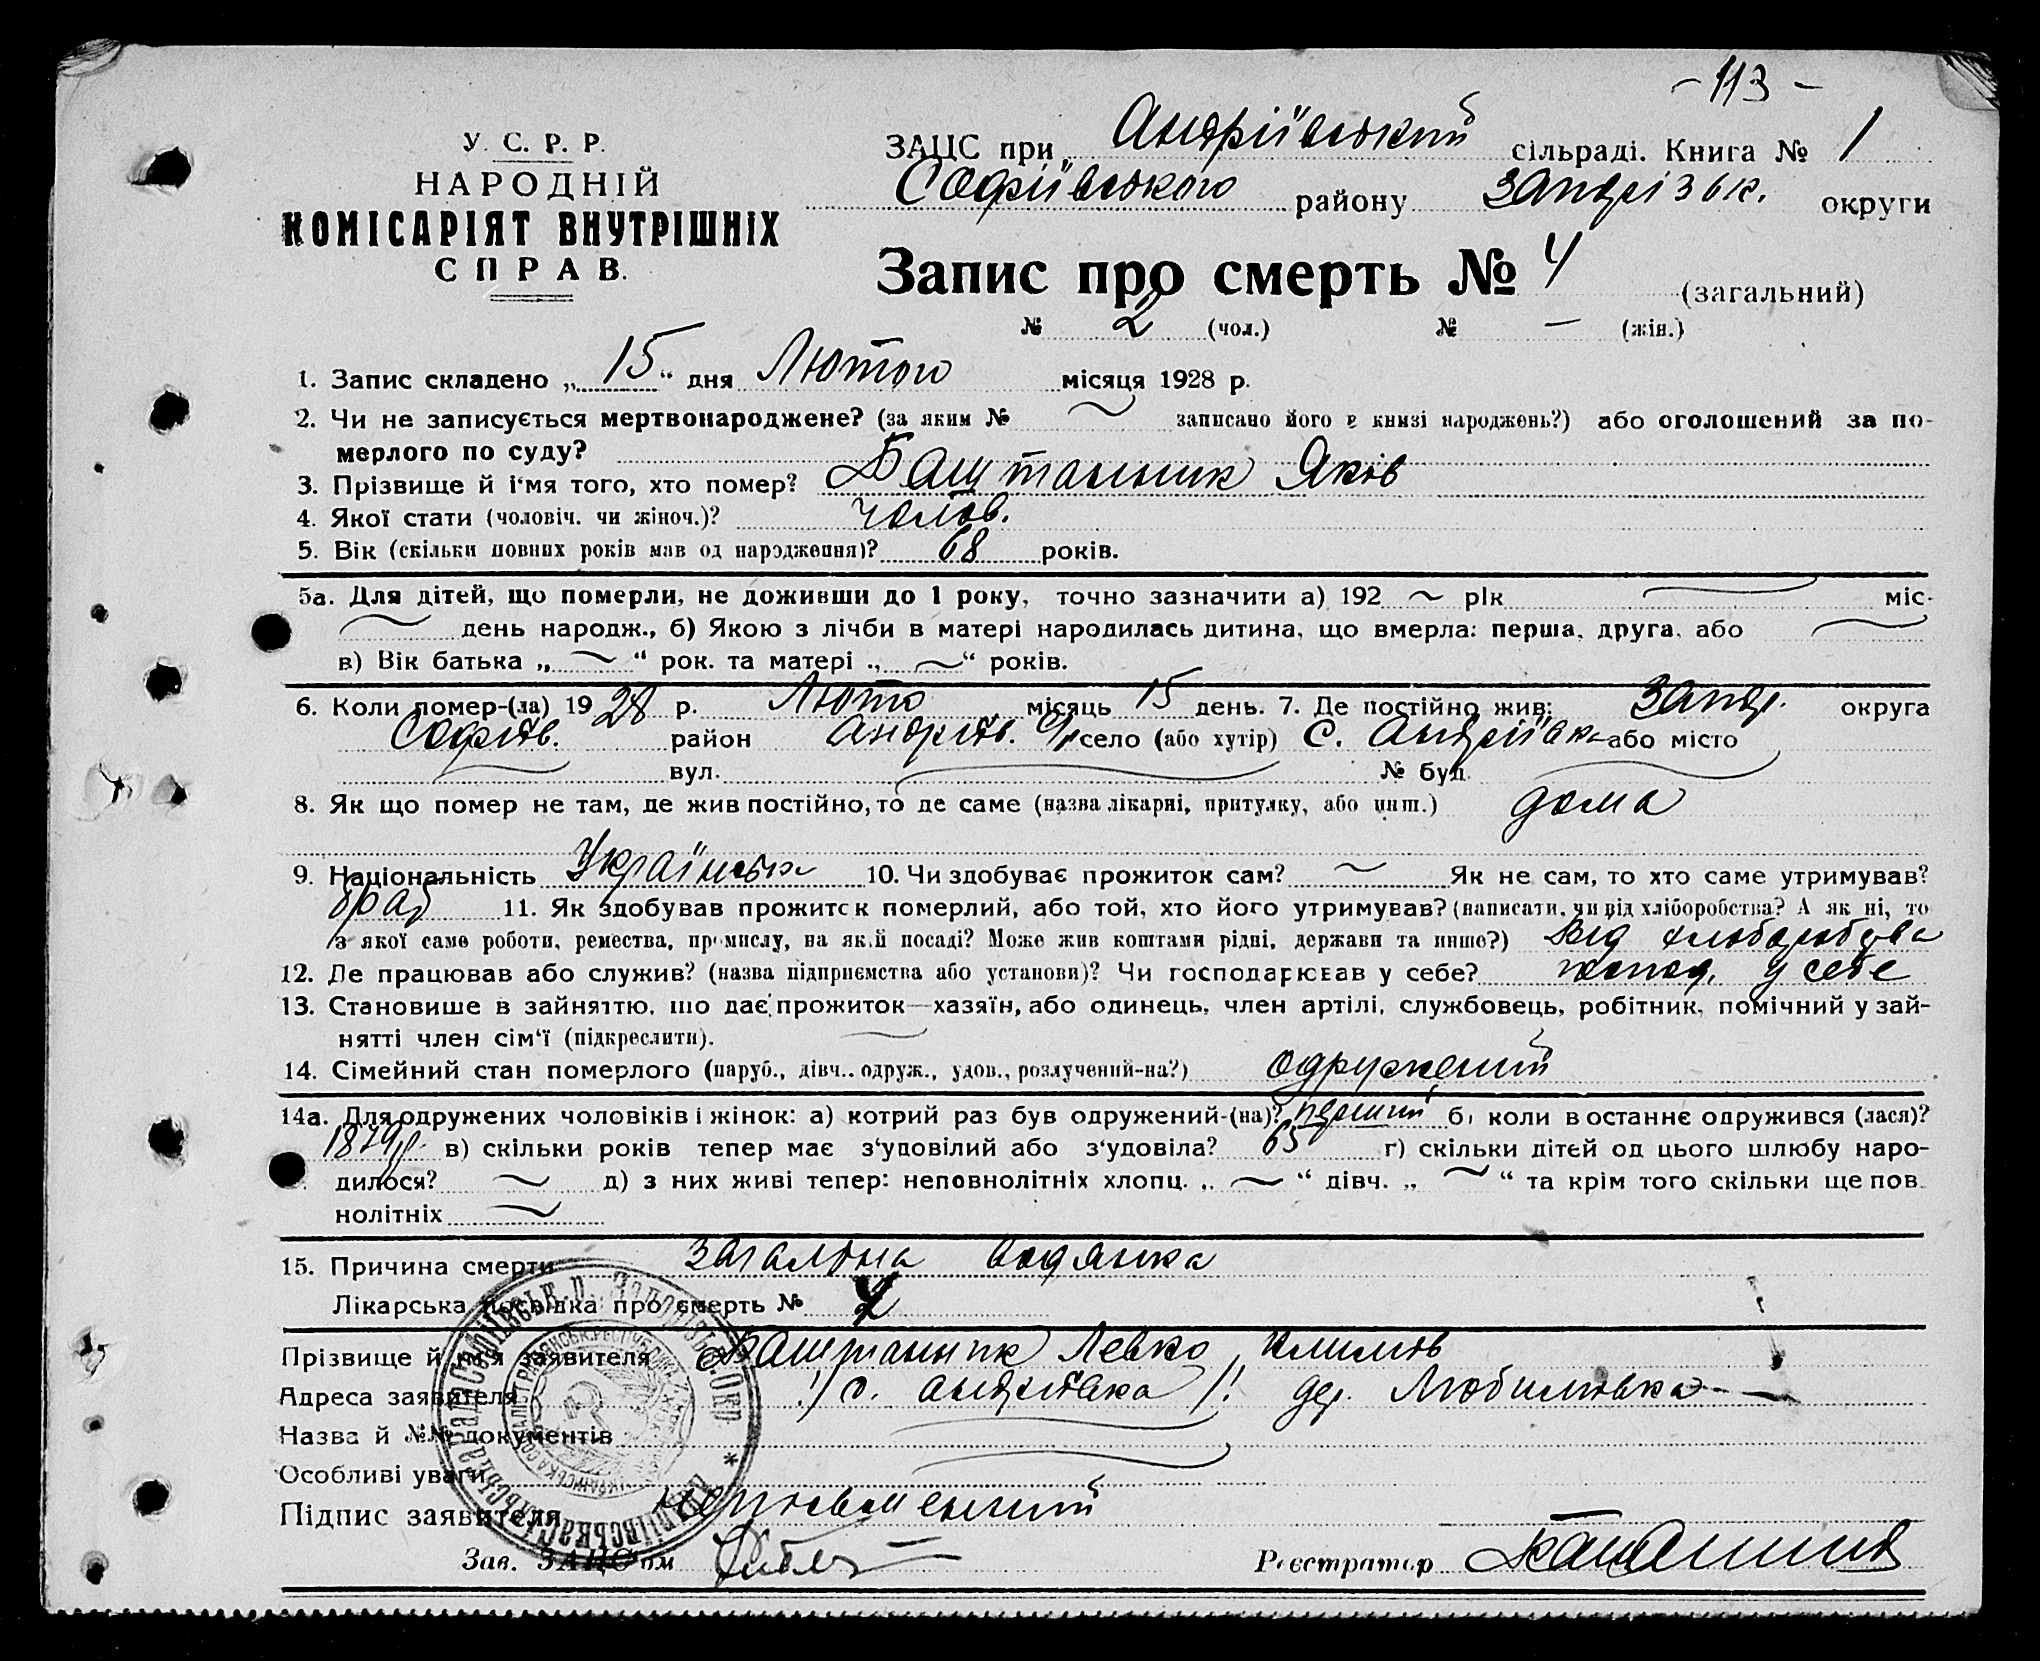 - 113 -
У. С. Р. Р.
НАРОДНІЙ
КОМІСАРІЯТ ВНУТРІШНІХ
СПРАВ.
ЗАЦС при Андріївський сільраді. Книга № 1
Софіївського району Запорізьк. округи
Запис про смерть № 4 (загальний)
№ 2 (чол.) № — (жін.)
1. Запис складено „ 15 “ дня Лютого місяця 1928 р.
2. Чи не записується мертвонароджене? (за яким № ~ записано його в книзі народжень?) або оголошений за по-
мерлого по суду?
3. Прізвище й ім'я того, хто помер? Баштанник Яків
4. Якої стати (чоловіч. чи жіноч.)? чолов.
5. Вік (скільки повних років мав од народження)? 68 років.
5а. Для дітей, що померли, не доживши до 1 року, точно зазначити а) 192 ~ рік ~ міс-
~ день народж., б) Якою з лічби в матері народилась дитина, що вмерла: перша, друга, або ~
в) Вік батька „ ~ “ рок. та матері „ ~ “ років.
6. Коли помер-(ла) 1928 р. Люто місяць 15 день. 7. Де постійно жив: Запор. округа
Софіїв. район Андріїв. с/р село (або хутір) С. Андріївка або місто
~ вул. ~ № буд. ~
8. Як що помер не там, де жив постійно, то де саме (назва лікарні, притулку, або инш.) дома
9. Національність Українська 10. Чи здобуває прожиток сам? ~ Як не сам, то хто саме утримував?
брат 11. Як здобував прожиток померлий, або той, хто його утримував? (написати, чи від хліборобства? А як ні, то
з якої саме роботи, ремества, промислу, на якій посаді? Може жив коштами рідні, держави та инше?) Від
12. Де працював або служив? (назва підприємства або установи)? Чи господарював у себе? господ. у себе
13. Становише в зайняттю, що дає прожиток—хазяїн, або одинець, член артілі, службовець, робітник, помічний у зай-
нятті член сім'ї (підкреслити). ~
14. Сімейний стан померлого (паруб., дівч., одруж., удов., розлучений-на?) одружений
14а. Для одружених чоловіків і жінок: а) котрий раз був одружений-(на)? перший б) коли в останнє одружився (лася)?
1879 р. в) скільки років тепер має з'удовілий або з'удовіла? 65 г) скільки дітей од цього шлюбу наро-
дилося? ~ д) з них живі тепер: неповнолітніх хлопц. „ ~ “ дівч. „ ~ “ та крім того скільки ще пов-
нолітніх ~
15. Причина смерти загальна водянка
Лікарська посвідка про смерть №
Прізвище й ім'я заявителя Баштанник Левко Климов
Адреса заявителя !/ с. Андріївка /! дер. Любимовка
Назва й №№ документів
Особливі уваги
Підпис заявителя неписьменний
Зав. ЗАЦС'ом
Реєстратор